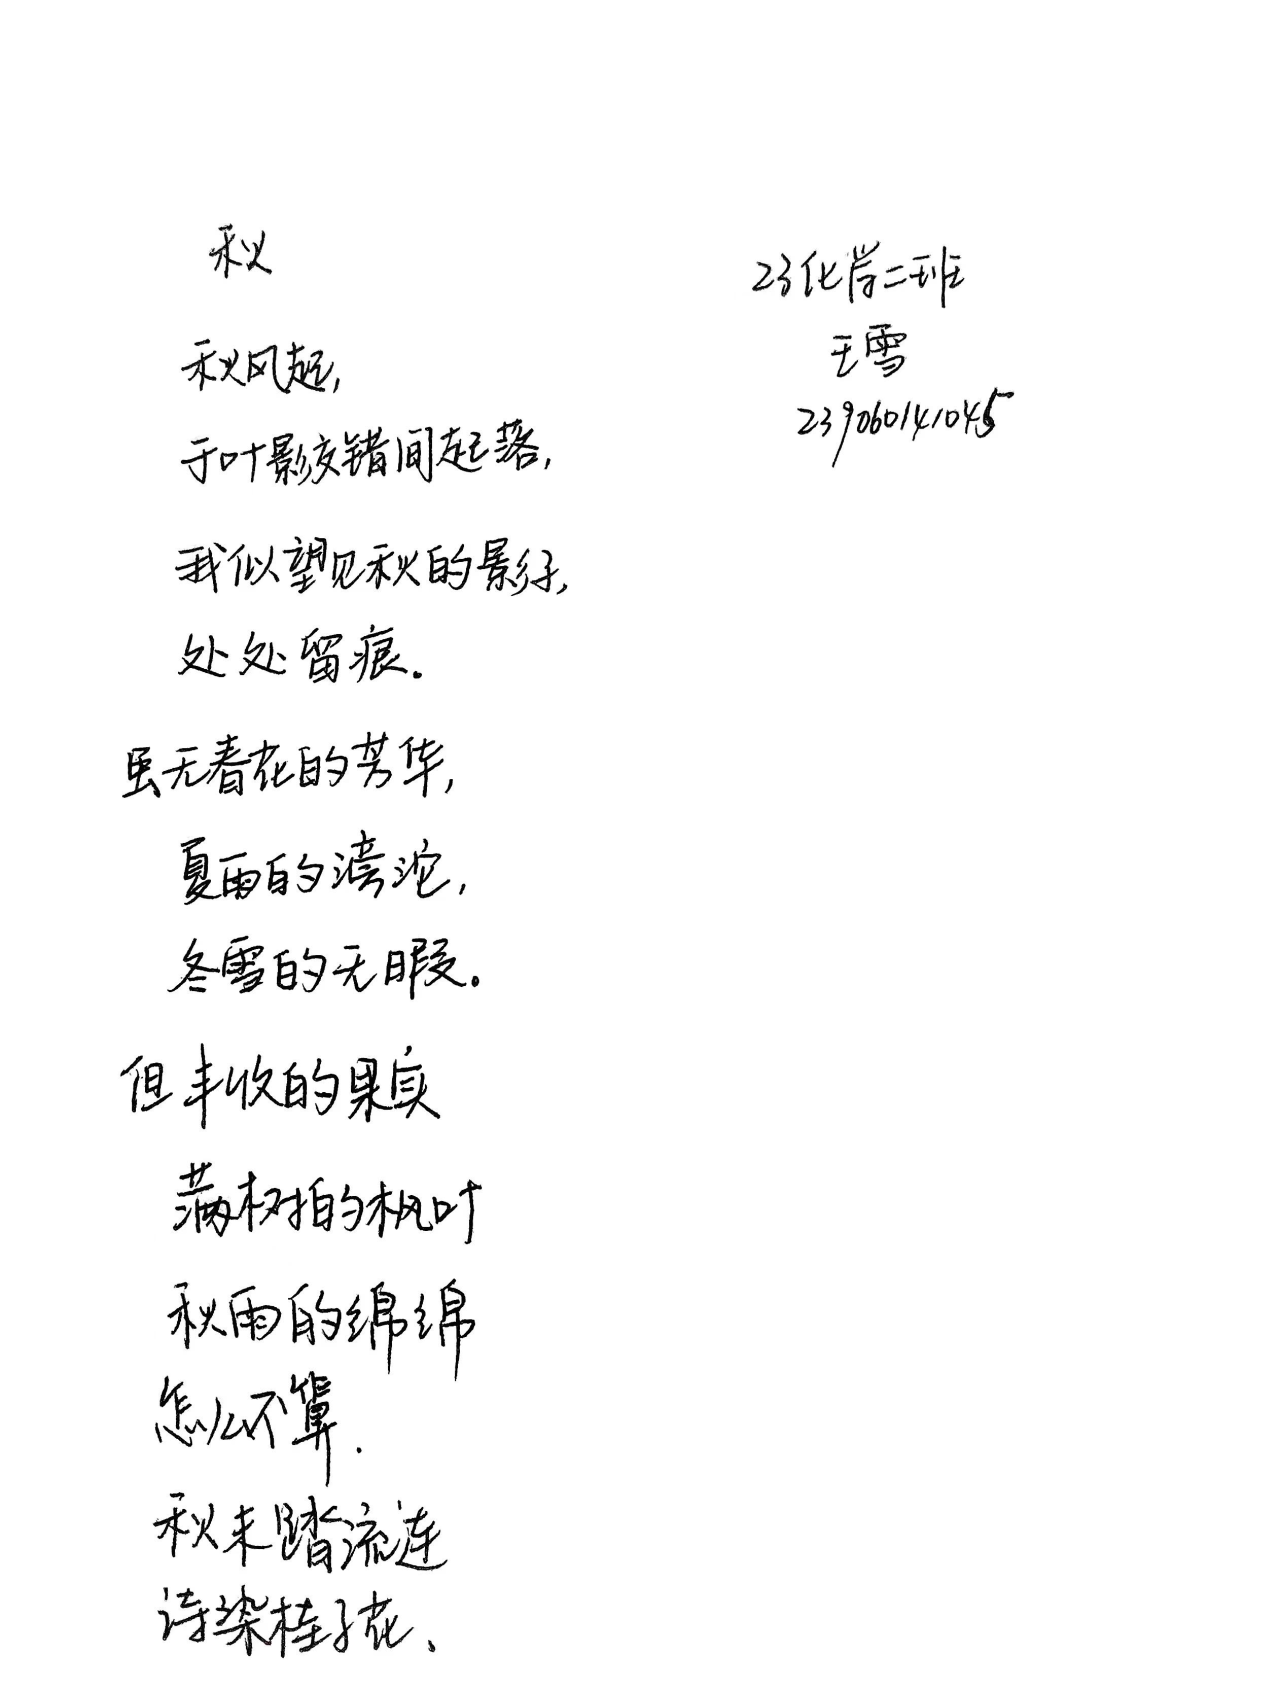 秋
23化学二班
王雪
239060141045
秋风起,
于叶影交错间起落,
我似望见秋的影子,
处处留痕.
虽无春花的芳华,
夏雨的滂沱,
冬雪的无暇。
但丰收的果实
满树拍的枫叶
秋雨的绵绵
怎么不算.
秋来踏流连
诗染桂子花、